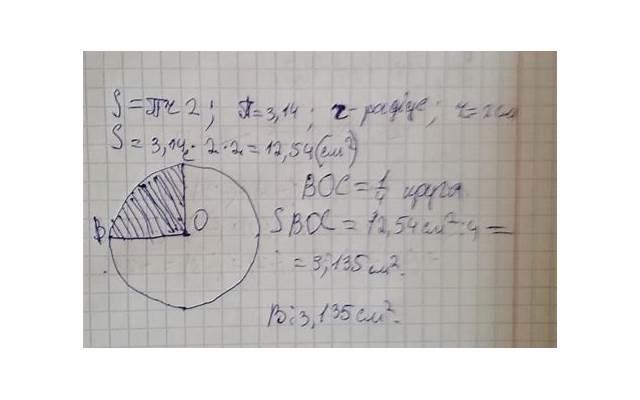 S = πr2; π = 3,14; r - радіус; r = 2 см
S = 3,14 · 2 · 2 = 12,54 (см²)
C
BOC = 1/4 круга
B O S BOC = 12,54 см² : 4 =
= 3,135 см².
В: 3,135 см².